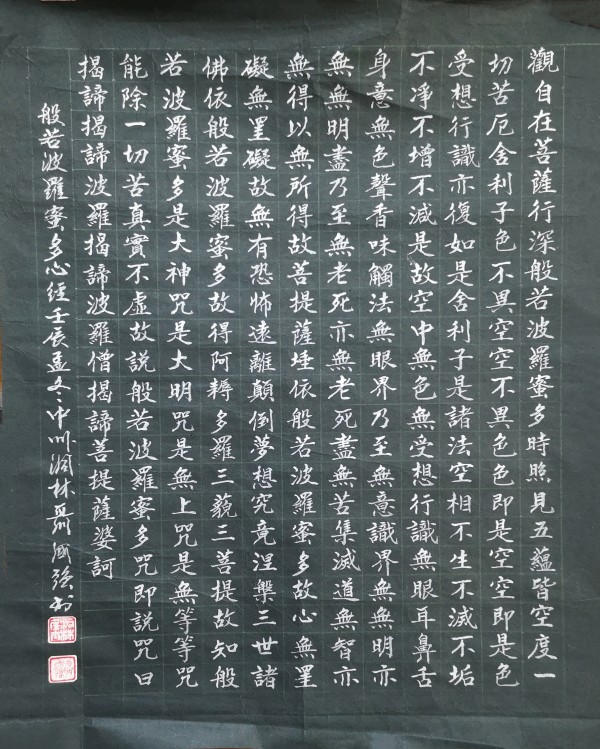 觀自在菩薩行深般若波羅蜜多時照見五蘊皆空度一
切苦厄舍利子色不異空空不異色色即是空空即是色
受想行識亦復如是舍利子是諸法空相不生不滅不垢
不凈不增不減是故空中無色無受想行識無眼耳鼻舌
身意無色聲香味觸法無眼界乃至無意識界無無明亦
無無明盡乃至無老死亦無老死盡無苦集滅道無智亦
無得以無所得故菩提薩埵依般若波羅蜜多故心無罣
礙無罣礙故無有恐怖遠離顛倒夢想究竟涅槃三世諸
佛依般若波羅蜜多故得阿耨多羅三藐三菩提故知般
若波羅蜜多是大神咒是大明咒是無上咒是無等等咒
能除一切苦真實不虛故說般若波羅蜜多咒即說咒曰
揭諦揭諦波羅揭諦波羅僧揭諦菩提薩婆訶
般若波羅蜜多心經壬辰孟冬中州林聶強书